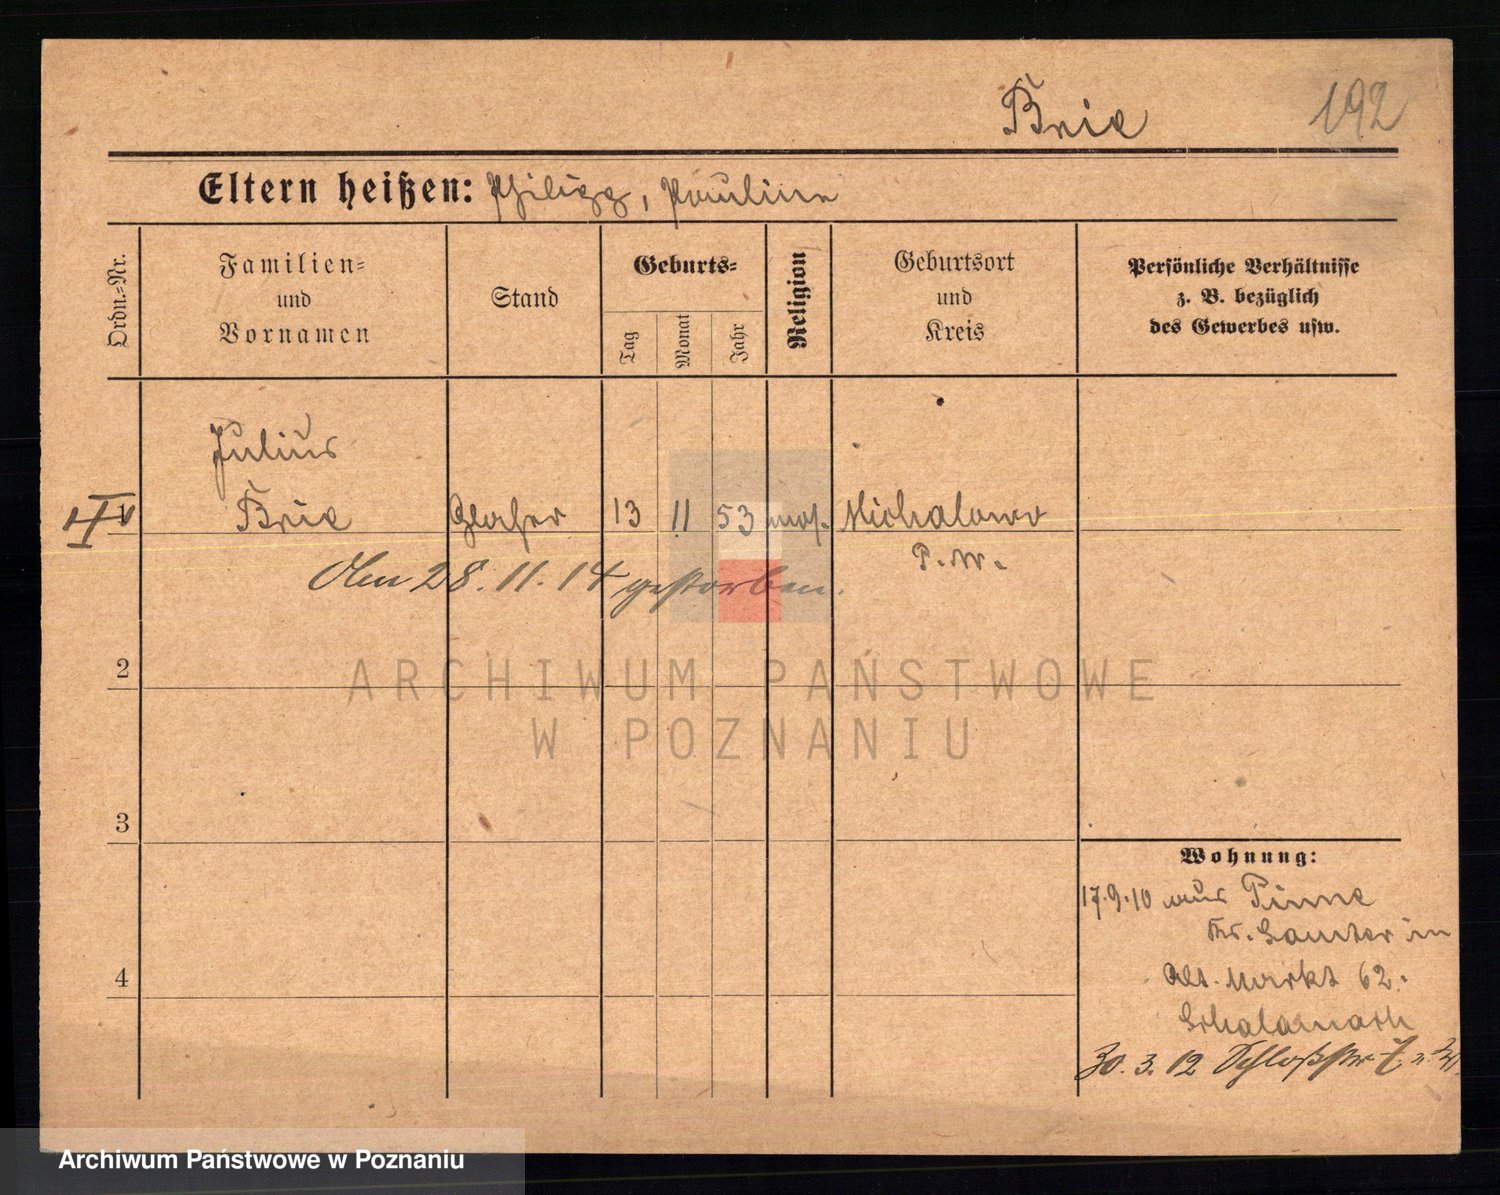 Brie
192
Eltern heißen: Philipp, Pauline
Ordn.-Nr.
Familien-
und
Vornamen
Stand
Geburts-
Tag
Monat
Jahr
Religion
Geburtsort
und
Kreis
Persönliche Verhältnisse
z. B. bezüglich
des Gewerbes usw.
Julius
Brie
13 11 53 mos. Michalowo
P. W.
Am 28. 11. 14 gestorben.
2
3
4
ARCHIWUM PAŃSTWOWE
W POZNANIU
Wohnung:
17.9.10 aus Pinne
Kr. Samter in
Alt. Markt 62.
30. 3. 12 Schloßstr 7
Archiwum Państwowe w Poznaniu